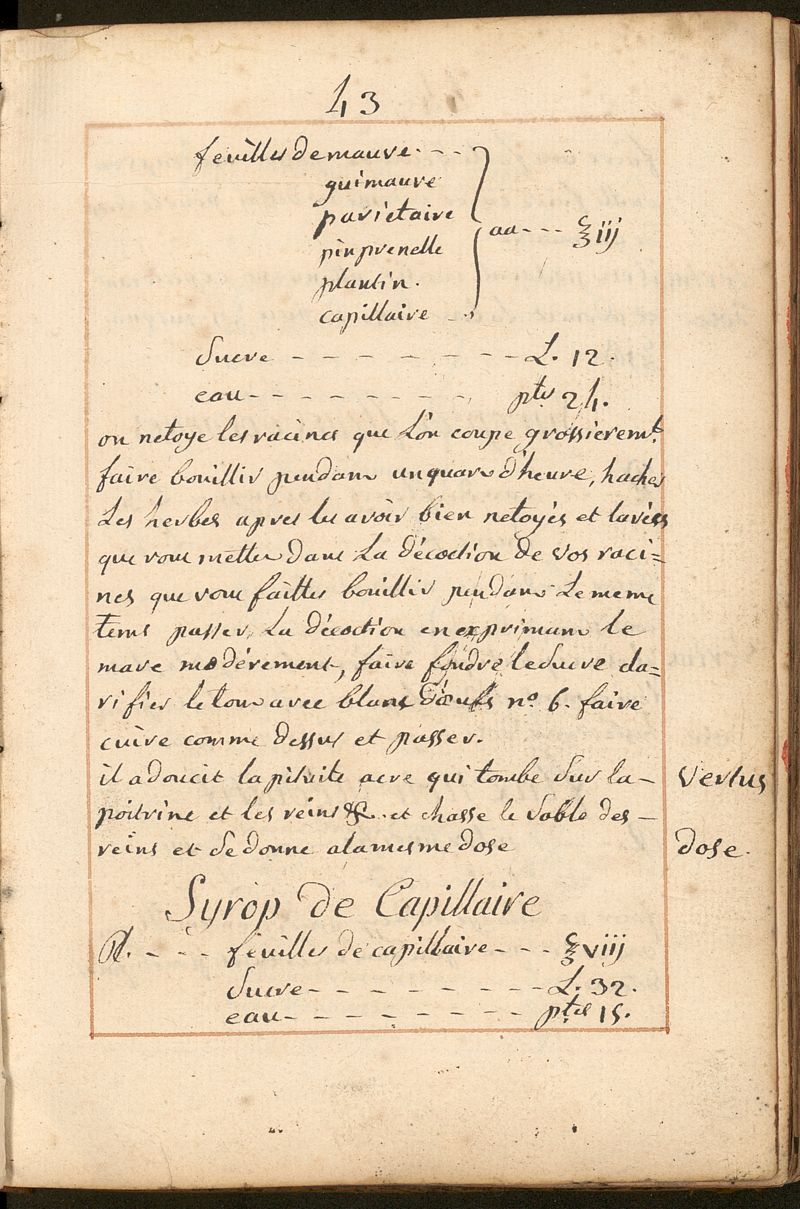 43
feuilles de mauve - - -
guimauve
pariétaire
aa - - - ℥iij
pinprenelle
plantin.
capillaire - -
Sucre - - - - - - - - L. 12.
eau - - - - - - - - ptes 24.
on netoye les racines que L'on coupe grossieremt.
faire bouillir pendant un quart d'heure, hachez
Les herbes apres les avoir bien netoyés et lavées
que vous mettez dans La décoction de vos raci=
nes que vous faittes bouillir pendant Le meme
tems passez La décoction en exprimant le
marc modérement, faire fondre le Sucre cla=
rifier le tout avec blans d'œufs n° 6. faire
cuire comme dessus et passer.
il adoucit la pituite acre qui tombe Sur la - vertus
poitrine et les reins &c. et chasse le Sable des -
reins et Se donne a la mesme dose dose.
Syrop de Capillaire
℞. - - - feuilles de capillaire - - - ℥viij
Sucre - - - - - - - - L. 32.
eau - - - - - - - - ptes 15.